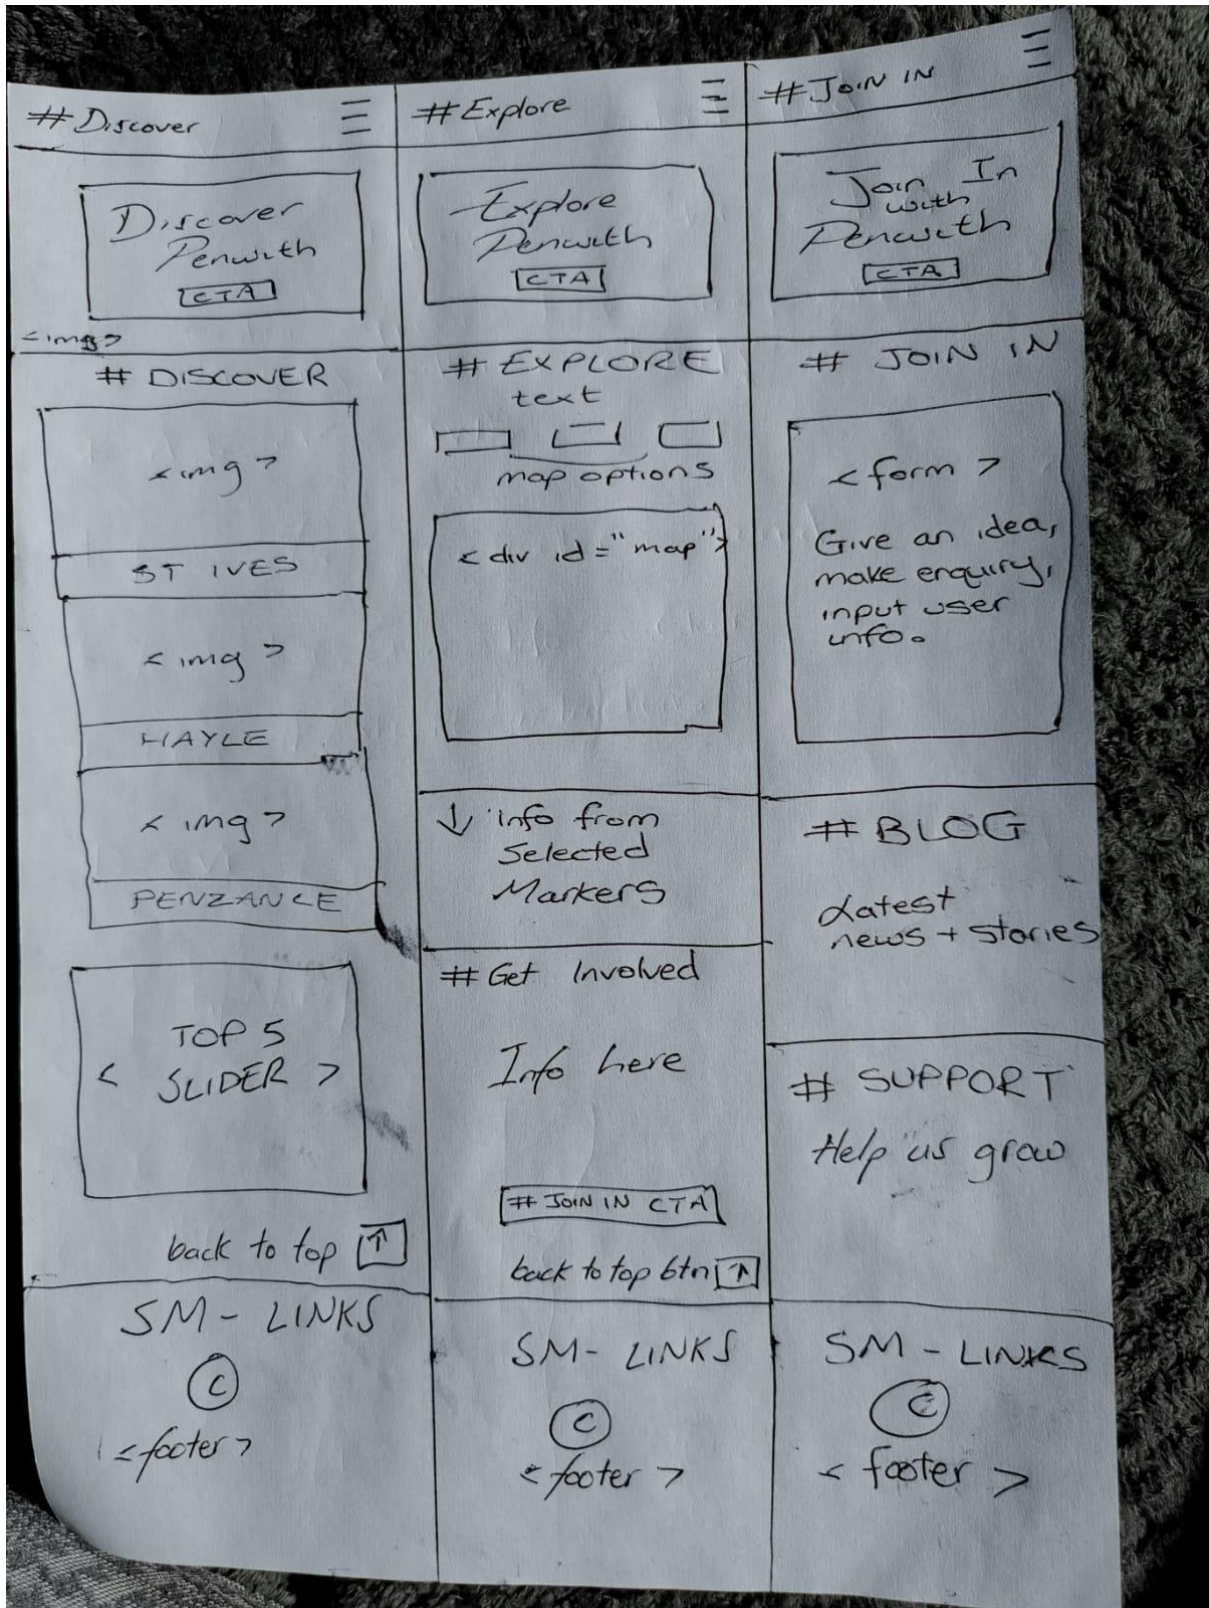 # Discover
Discover
Penwith
CTA
<img>
# DISCOVER
<img>
ST IVES
<img>
HAYLE
<img>
PENZANCE
TOP 5
< SLIDER >
back to top ↑
SM - LINKS
©
<footer>
# Explore
Explore
Penwith
CTA
# EXPLORE
text
map options
<div id="map">
↓ info from
Selected
Markers
# Get Involved
Info here
# JOIN IN CTA
back to top btn ↑
SM - LINKS
©
<footer>
# JOIN IN
Join In
with
Penwith
CTA
# JOIN IN
<form>
Give an idea,
make enquiry,
input user
info.
# BLOG
Latest
news + stories
# SUPPORT
Help us grow
SM - LINKS
©
<footer>